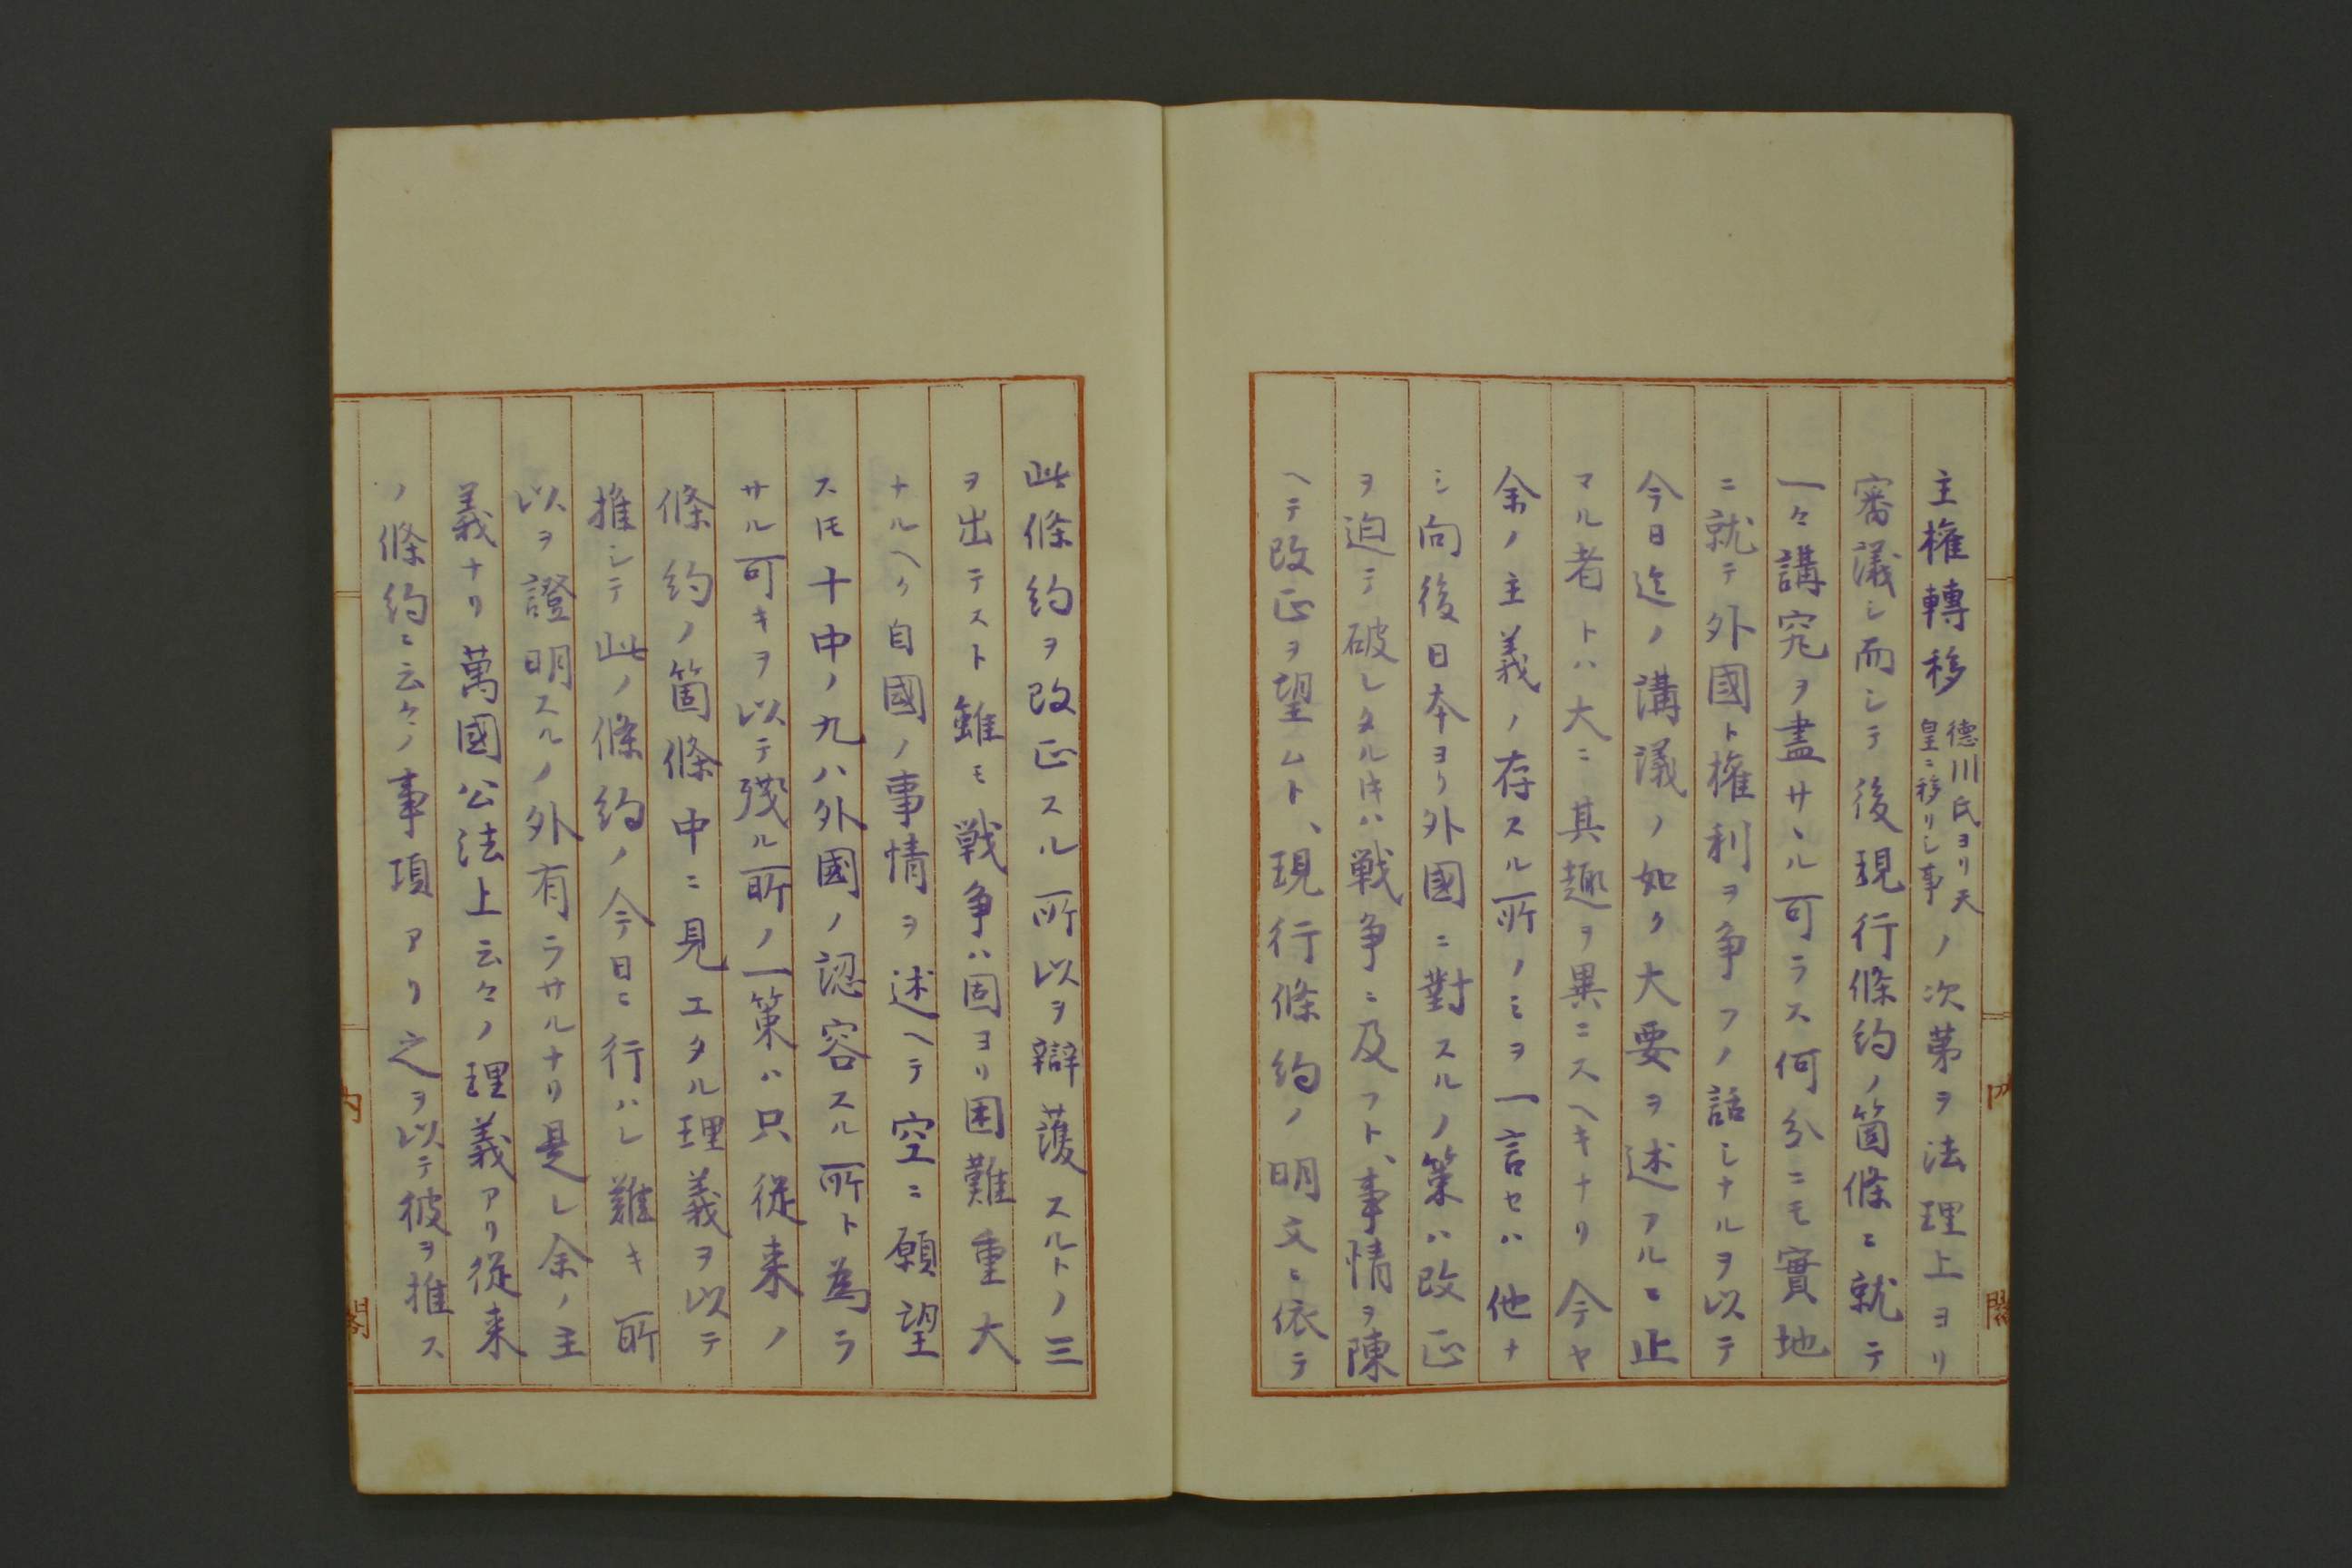 主權轉移德川氏ヨリ天皇ニ移リシ事ノ次第ヲ法理上ヨリ
審議シ而シテ後現行條約ノ箇條ニ就テ
一々講究ヲ盡サヽル可ラス何分ニモ實地
ニ就テ外國ト權利ヲ争フノ話シナルヲ以テ
今日迄ノ講議ノ如ク大要ヲ述フルニ止
マル者トハ大ニ其趣ヲ異ニスヘキナリ今ヤ
余ノ主義ノ存スル所ノミヲ一言セハ他ナ
シ向後日本ヨリ外國ニ對スルノ策ハ改正
ヲ迫テ破レタルキハ戦争ニ及フト、事情ヲ陳
ヘテ改正ヲ望ムト、現行條約ノ明文ニ依テ
内閣
此條約ヲ改正スル所以ヲ辯護スルトノ三
ヲ出テスト雖モ戦争ハ固ヨリ困難重大
ナルヘク自國ノ事情ヲ述ヘテ空ニ願望
スルモ十中ノ九ハ外國ノ認容スル所ト為ラ
サル可キヲ以テ殘ル所ノ一策ハ只從来ノ
條約ノ箇條中ニ見エタル理義ヲ以テ
推シテ此ノ條約ノ今日ニ行ハレ難キ所
以ヲ證明スルノ外有ラサルナリ是レ余ノ主
義ナリ萬國公法上云々ノ理義アリ從来
ノ條約ニ云々ノ事項アリ之ヲ以テ彼ヲ推ス
内閣